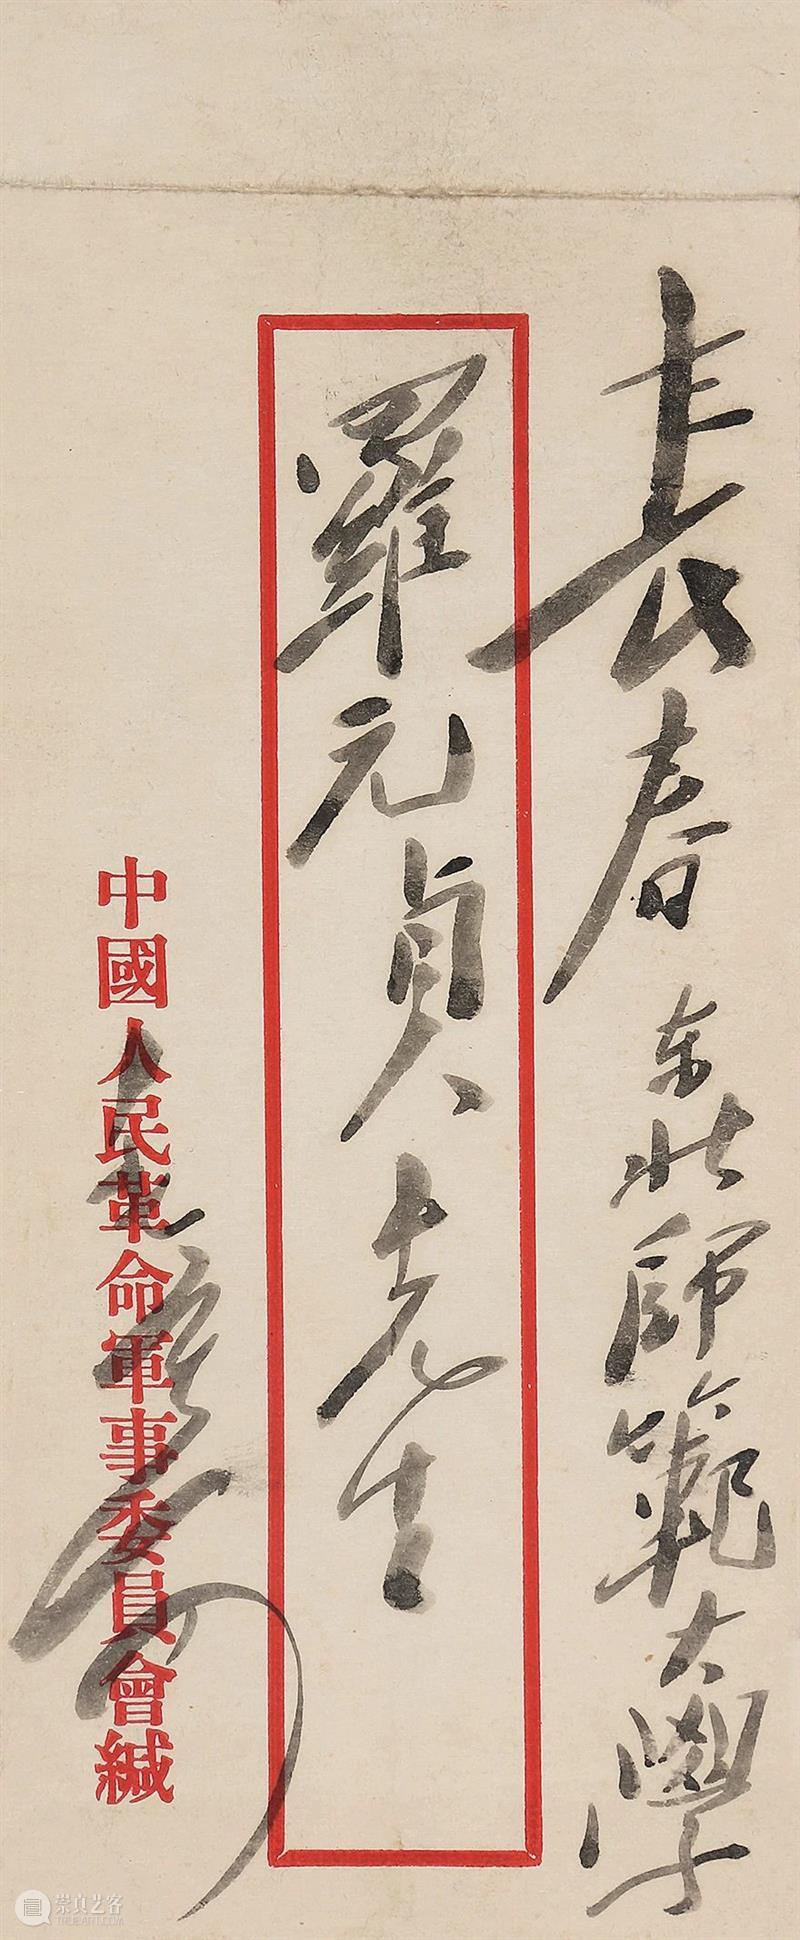 長春东北師範大學
羅元貞先生
中國人民革命軍事委員會緘
崇真艺客
TRUEART.COM